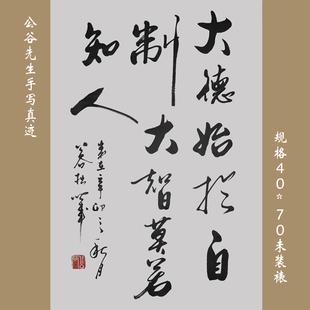 规格40☆70未装裱
大德始於自
制大智莫若
知人
辛卯之秋月
公谷拙笔
公谷先生手写真迹